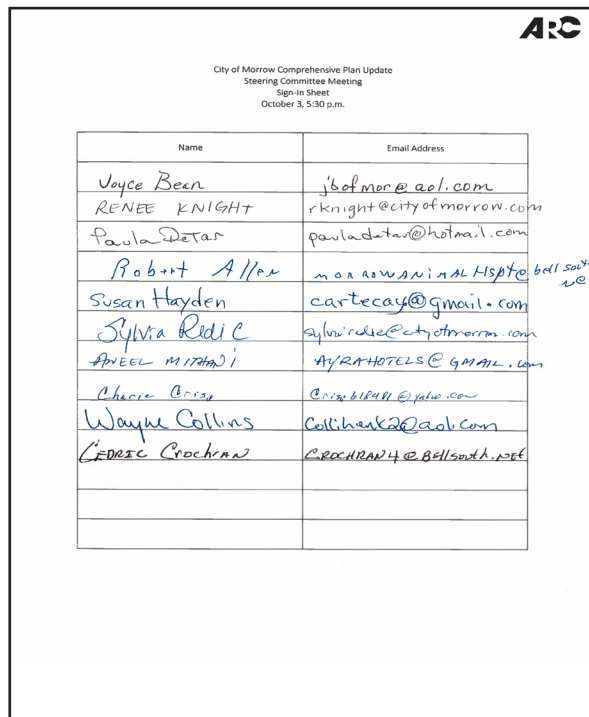 ARC
City of Morrow Comprehensive Plan Update
Steering Committee Meeting
Sign-In Sheet
October 3, 5:30 p.m.
Name Email Address
Joyce Bean jbofmor@aol.com
RENEE KNIGHT rknight@cityofmorrow.com
Paula DeTar pauladetar@hotmail.com
Robert Allen MORROWANIMALHspt@bellsouth.
Susan Hayden cartecay@gmail.com
Sylvia Redic
ANEEL MITHANI AYRAHOTELS@GMAIL.com
Cherie Crisp Crisp618481@yahoo.com
Wayne Collins Collihank2@aol.com
CEDRIC Crochran CROCHRAN4@Bellsouth.NET